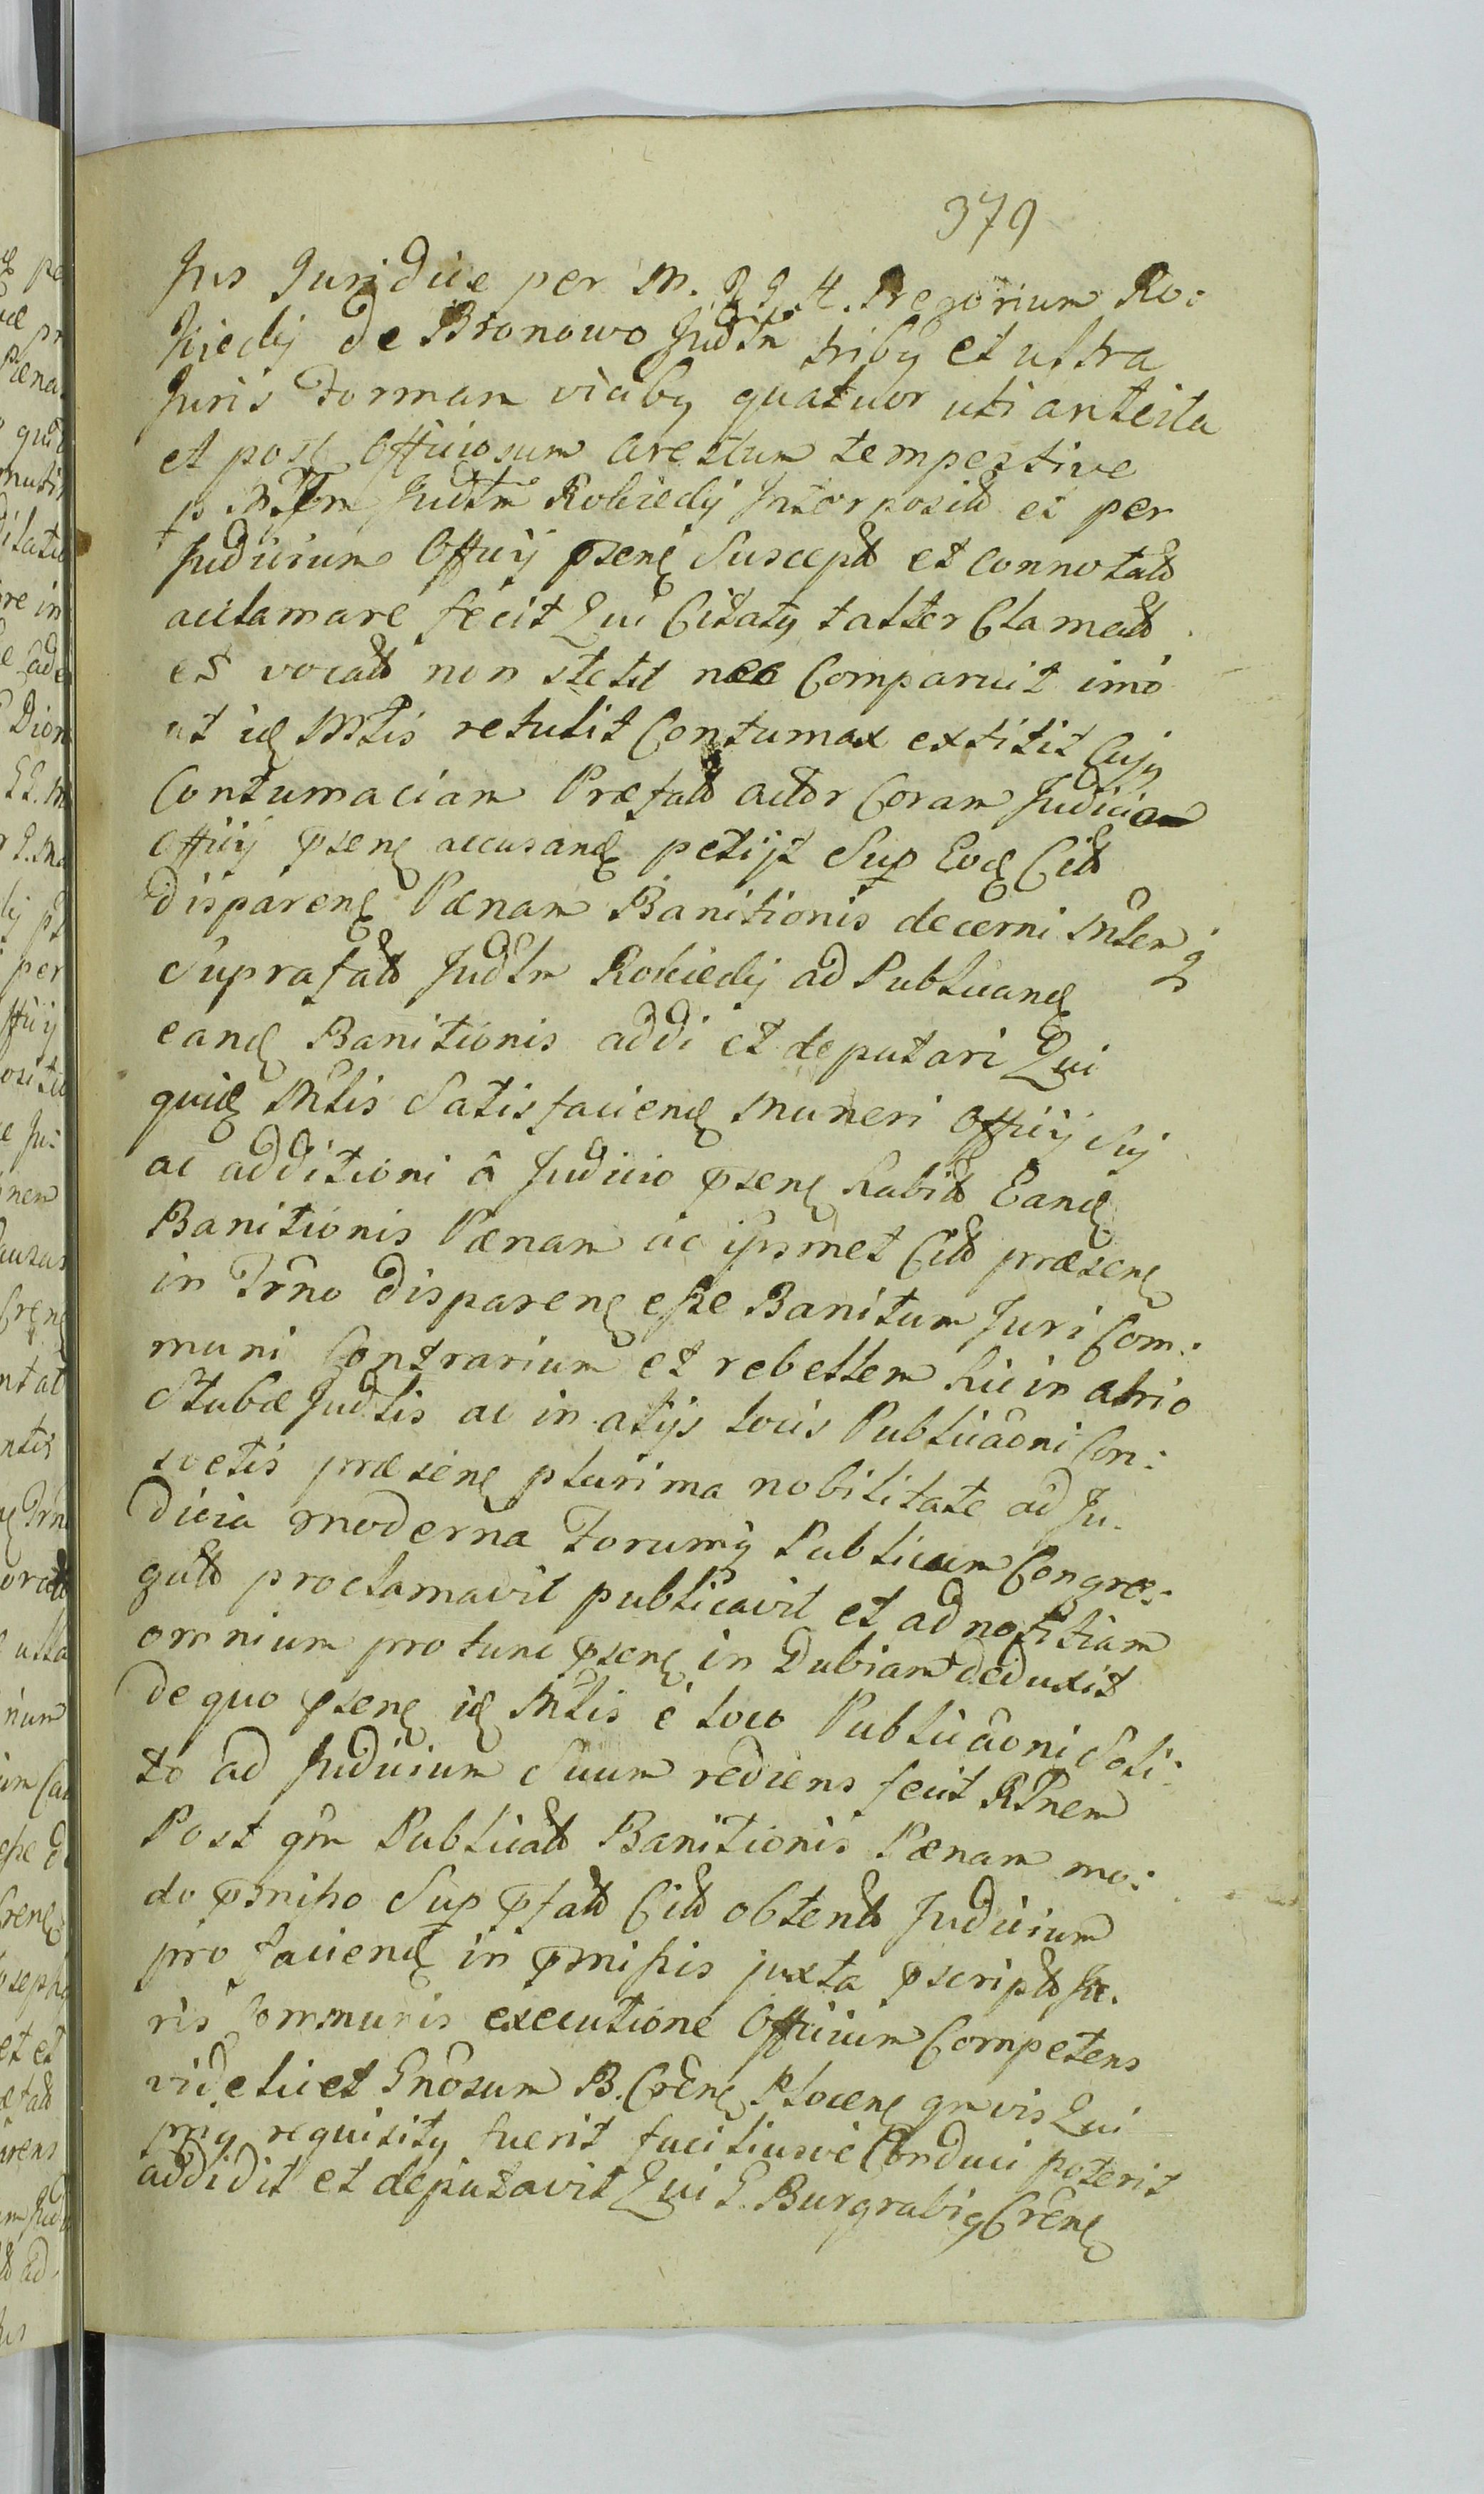 379
Jus Juridice per M. R G. H. Gregorium Ro:
kicclij de Bronowo Judlm tribq et ultra
Juris Formam viciby quatuor uti antesta
et post officiosum arestum tempestive
p Mtrm Judlm Rokicclij Interposit et per
Judicium Officij pseneͩ Suscept et connotat
acclamare fecit Qui Citatq talter Clamat
et vocat non stetit nec Comparuit imò
ut id Mtis retulit Contumax extitit Cujq
Contumaciam Præfat actor Coram Judicio
officij psen accusand petijt Sup Eod Cit
disparen Pænam Banitionis decerni Mlem q
Suprafat Judlm Rokicclij ad Publicand
eand Banitionis addi et deputari Qui
quid Mtis Satisfaciend muneri officij Suj
ac additioni â Judicio psen habit Eand
Banitionis Pænam ac ipsmet Cit præsen
in Trno disparen eße Banitum Juri Com:
muni Contrarium et rebellem hic in atrio
Stubæ Judlis ac in alijs locis Publicaoni Con:
svetis præsen plurima nobilitate ad Ju:
dicia moderna Forumq Publicum Congre:
gat proclamavit publicavit et ad notitiam
omnium pro tunc psen in Dubiam deduxit
de quo psen id Mtis è loco Publicaoni Soli:
to ad Judicium Suum rediens fecit Rlnem
Post qm Publicat Banitionis Pænam mo:
do pmißo Sup pfat Cit obtent Judicium
pro faciend in pmißis juxta pscript Ju:
ris Communis executione Officium Competens
videlicet Gnosum B. Cren Plocen qmvis Qui
priq requisitq fuerit faciliusve Conduci poterit
addidit et deputavit Qui G. Burgrabiq Cren